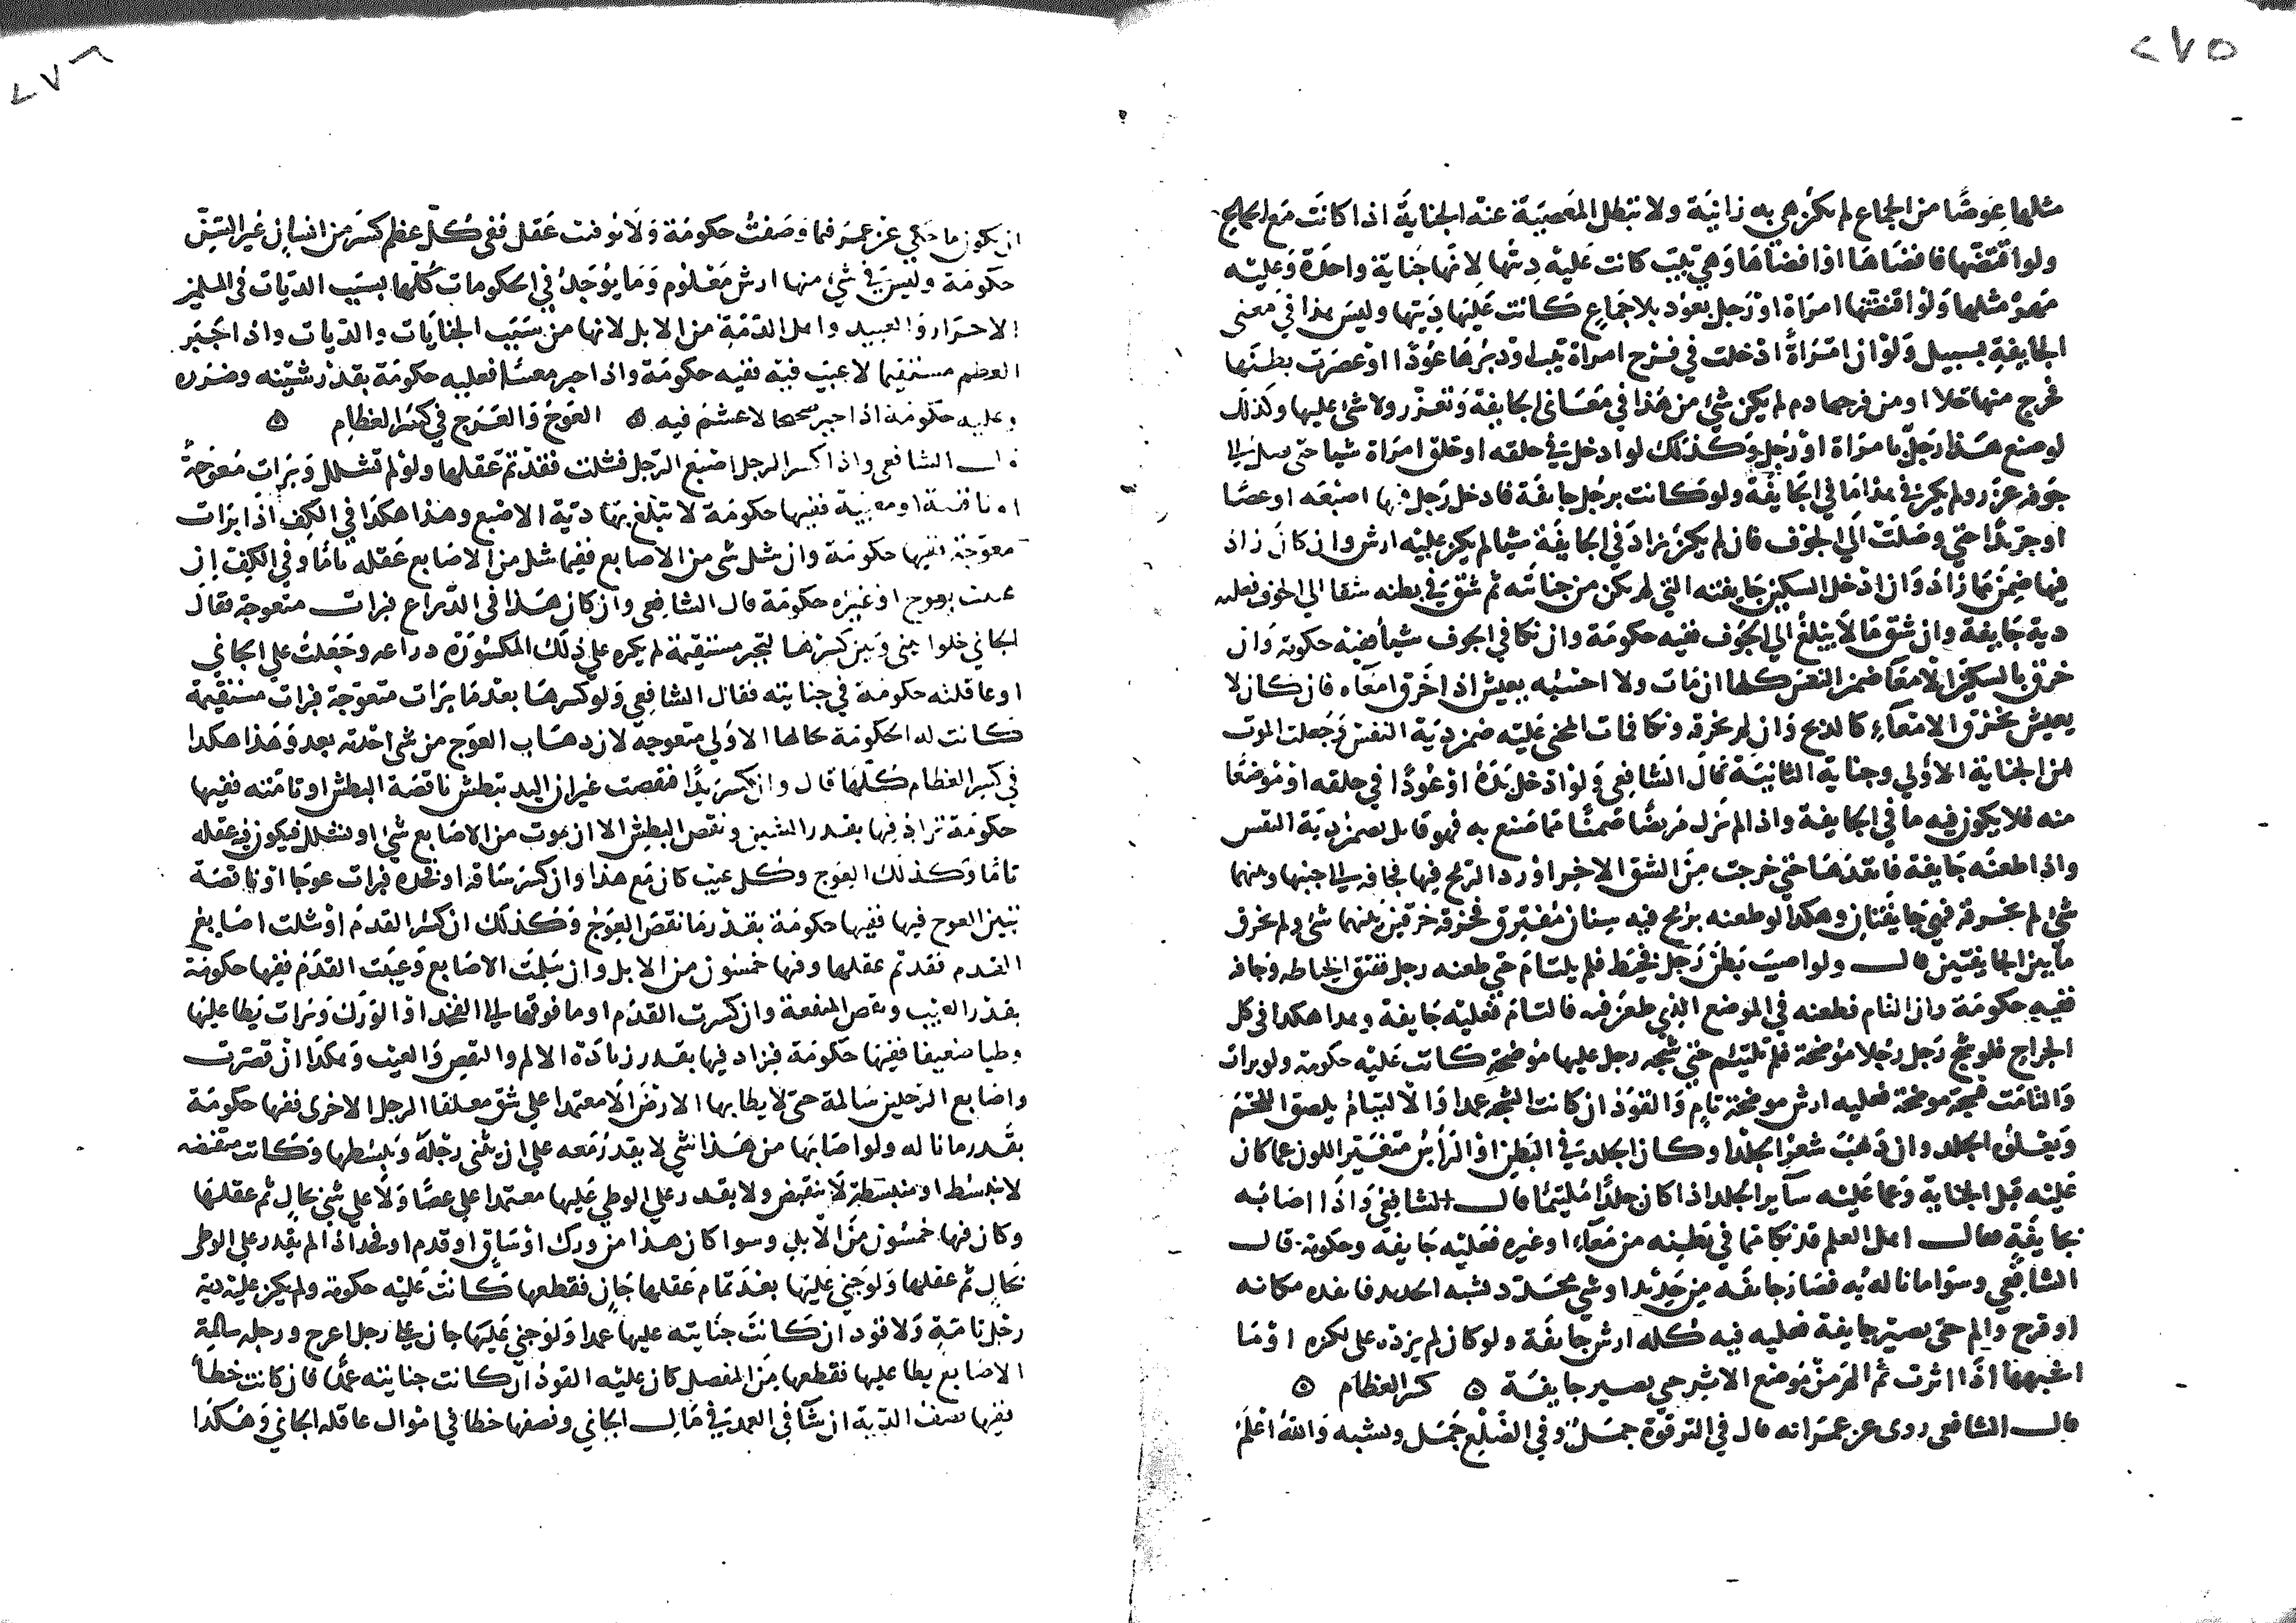 ٢٧٥
مثلها عوضا من الجماع لم يكن هي به زانية ولا تبطل المعصية عنه الجناية اذا كانت مع الجماع
ولو اقتضها فافضاها اذا افضاها وهي ثيب كانت عليه ديتها لانها جناية واحدة وعليه
مهر مثلها ولو اقتضتها امراة او رجل بعود بلا جماع كانت عليها ديتها وليس هذا في معنى
الجايفة بسبيل ولو ان امراة ادخلت في فرج امراة ثيب او دبرها عودا او عصرت بطنها
فخرج منها خلا او من فرجها دم لم يكن شئ من هذا في معانى الجايفة وتعزر ولا شئ عليها وكذلك
لو صنع هذا رجل بامراة او رجل وكذلك لو ادخل في حلقه او حلق امراة شيا حتى يصل الى
جوفه عزر ولم يكن في هذا ما في الجايفة ولو كانت برجل جايفة فادخل رجل فيها اصبعه او عصا
او جريدا حتى وصلت الى الجوف فان لم يكن زاد في الجايفة شيا لم يكن عليه ارش وان كان زاد
فيها ضمن ما زاد وان ادخل السكين جايفته التي لم يكن من جنايته ثم شق في بطنه شقا الى الجوف فعليه
دية جايفة وان شق ما لا يبلغ الى الجوف ففيه حكومة وان نكا في الجوف شيا ففيه حكومة وان
خرق بالسكين الامعا ضمن النفس كلها ان مات ولا احسبه يعيش اذا خرق امعاه فان كان لا
يعيش بخرق الامعاء كالذبح وان لم يخرقه ونكا فمات المجنى عليه ضمن دية النفس وجعلت الموت
من الجناية الاولي وجناية الثانية قال الشافعي ولو ادخل يده او عودا في حلقه او موضعا
منه فلا يكون فيه ما في الجايفة واذا لم يزل مريضا ضمنا مما صنع به فهو قاتل يضمن دية النفس
واذا طعنه جايفة فانفذها حتى خرجت من الشق الاخر او رد الرمح فيها فجافه الى جنبها وبينهما
شئ لم يخرقه فهي جايفتان وهكذا لو طعنه برمح فيه سنان مفترق فخرقه خرقين بينهما شئ ولم يخرق
ما بين الجايفتين قال ولو اصيب بطن رجل فخيط فلم يلتام حتى طعنه رجل ففتق الخياطه وجافه
ففيه حكومة وان التام فطعنه في الموضع الذي طعن فيه فالتام فعليه جايفة وهذا هكذا في كل
الجراح فلو شج رجل رجلا موضحة فلم تلتئم حتي شجه رجل عليها موضحة كانت عليه حكومة ولو برات
والتامت فشجه موضحة فعليه ارش موضحة تام والقود ان كانت الشجه عمدا والالتيام يلصق اللحم
ويعلوه الجلد وان ذهب شعر الجلد او كان الجلد في البطن او الراس متغير اللون عما كان
عليه قبل الجناية وعما عليه ساير الجلد اذا كان جلدا ملتئما قال الشافعي واذا اصابه
بجايفة فقال اهل العلم قد نكا ما في بطنه من معاء او غيره فعليه جايفة وحكومة قال
الشافعي وسوا ما ناله به فصار جايفه من حديدا او شئ محدد يشبه الحديد فانفده مكانه
او قرح والم حتى يصير جايفة فعليه فيه كله ارش جايفة ولو كان لم يزده على لكزه او ما
اشبهها اذا اثرت ثم الم من موضع الاثر حتى يصير جايفة ه كسر العظام ه
قال الشافعى روى عن عمر انه قال في الترقوة جمل وفي الضلع جمل ويشبه والله اعلم
٢٧٦
ان يكون ما حكي عن عمر فيما وصفت حكومة ولا توقيت عقل ففي كل عظم كسر من انسان غير السن
حكومة وليس في شئ منها ارش معلوم وما يؤخذ في الحكومات كلها بسبب الديات في المسلمين
الاحرار والعبيد واهل الذمة من الابل لانها من سبب الجنايات والديات واذا جبر
العظم مستقيما لا عيب فيه ففيه حكومة واذا جبر معيبا فعليه حكومة بقدر شينه وضرره
وعليه حكومة اذا جبر صحيحا لا عثم فيه ه العوج والعرج في كسر العظام ه
قال الشافعى واذا كسر الرجل اصبع الرجل فشلت فقد تم عقلها ولو لم تشلل وبرات معوجة
او ناقصة او معيبة ففيها حكومة لا تبلغ بها دية الاصبع وهذا هكذا في الكف اذا برات
معوجة ففيها حكومة وان شل شى من الاصابع ففيما شل من الاصابع عقله تاما وفي الكف ان
عيبت بعوج او غيره حكومة قال الشافعى وان كان هذا في الذراع فبرات متعوجة فقال
الجاني خلوا بينى وبين كسرها لتجبر مستقيمة لم يكره علي ذلك المكسورة ذراعه وجعلت علي الجاني
او عاقلته حكومة في جنايته فقال الشافعي ولو كسرها بعد ما برات متعوجة فبرات مستقيمة
كانت له الحكومة بحالها الاولي متعوجة لان ذهاب العوج من شى احدثه بعد وهذا هكذا
في كسر العظام كلها قال وان كسر يدا فقصت غير ان اليد تبطش ناقصة البطش او تامته ففيها
حكومة تزاد فيها بقدر الشين ونقص البطش الا ان يموت من الاصابع شئ او تشلل فيكون فيه عقله
تاما وكذلك العوج وكل عيب كان مع هذا وان كسر ساقه او فخذه فبرات عوجا او ناقصة
يتبين العوج فيها ففيها حكومة بقدر ما نقص العوج وكذلك ان كسر القدم او شلت اصابع
القدم فقد تم عقلها وفيها خمسون من الابل وان سلمت الاصابع وعيبت القدم ففيها حكومة
بقدر العيب ونقص المنفعة وان كسرت القدم او ما فوقها الى الفخذ او الورك وبرات يطا عليها
وطيا ضعيفا ففيها حكومة فيزاد فيها بقدر زيادة الالم والنقص والعيب وهكذا ان قصرت
واصابع الرجلين سالمة حتى لا يطا بها الارض الا معتمدا علي شق معلقا الرجل الاخرى ففيها حكومة
بقدر ما ناله ولو اصابها من هذا شي لا يقدر معه علي ان يثنى رجله ويبسطها وكانت منقبضه
لا تنبسط او منبسطة لا تنقبض ولا يقدر علي الوطي عليها معتمدا علي عصا ولا علي شئ بحال تم عقلها
وكان فيها خمسون من الابل وسوا كان هذا من ورك او ساق او قدم او فخذ اذا لم يقدر علي الوطى
بحال تم عقلها ولو جني عليها بعد تمام عقلها جان فقطعها كانت عليه حكومة ولم يكن عليه دية
رجل تامة ولا قود ان كانت جنايته عليها عمدا ولو جني عليها جان على رجل اعرج ورجله سالمة
الاصابع يطا عليها فقطعها من المفصل كان عليه القود ان كانت جنايته عمدا فان كانت خطا
ففيها نصف الدية ان شا في العمد في مال الجاني ونصفها خطا في اموال عاقلة الجاني وهكذا